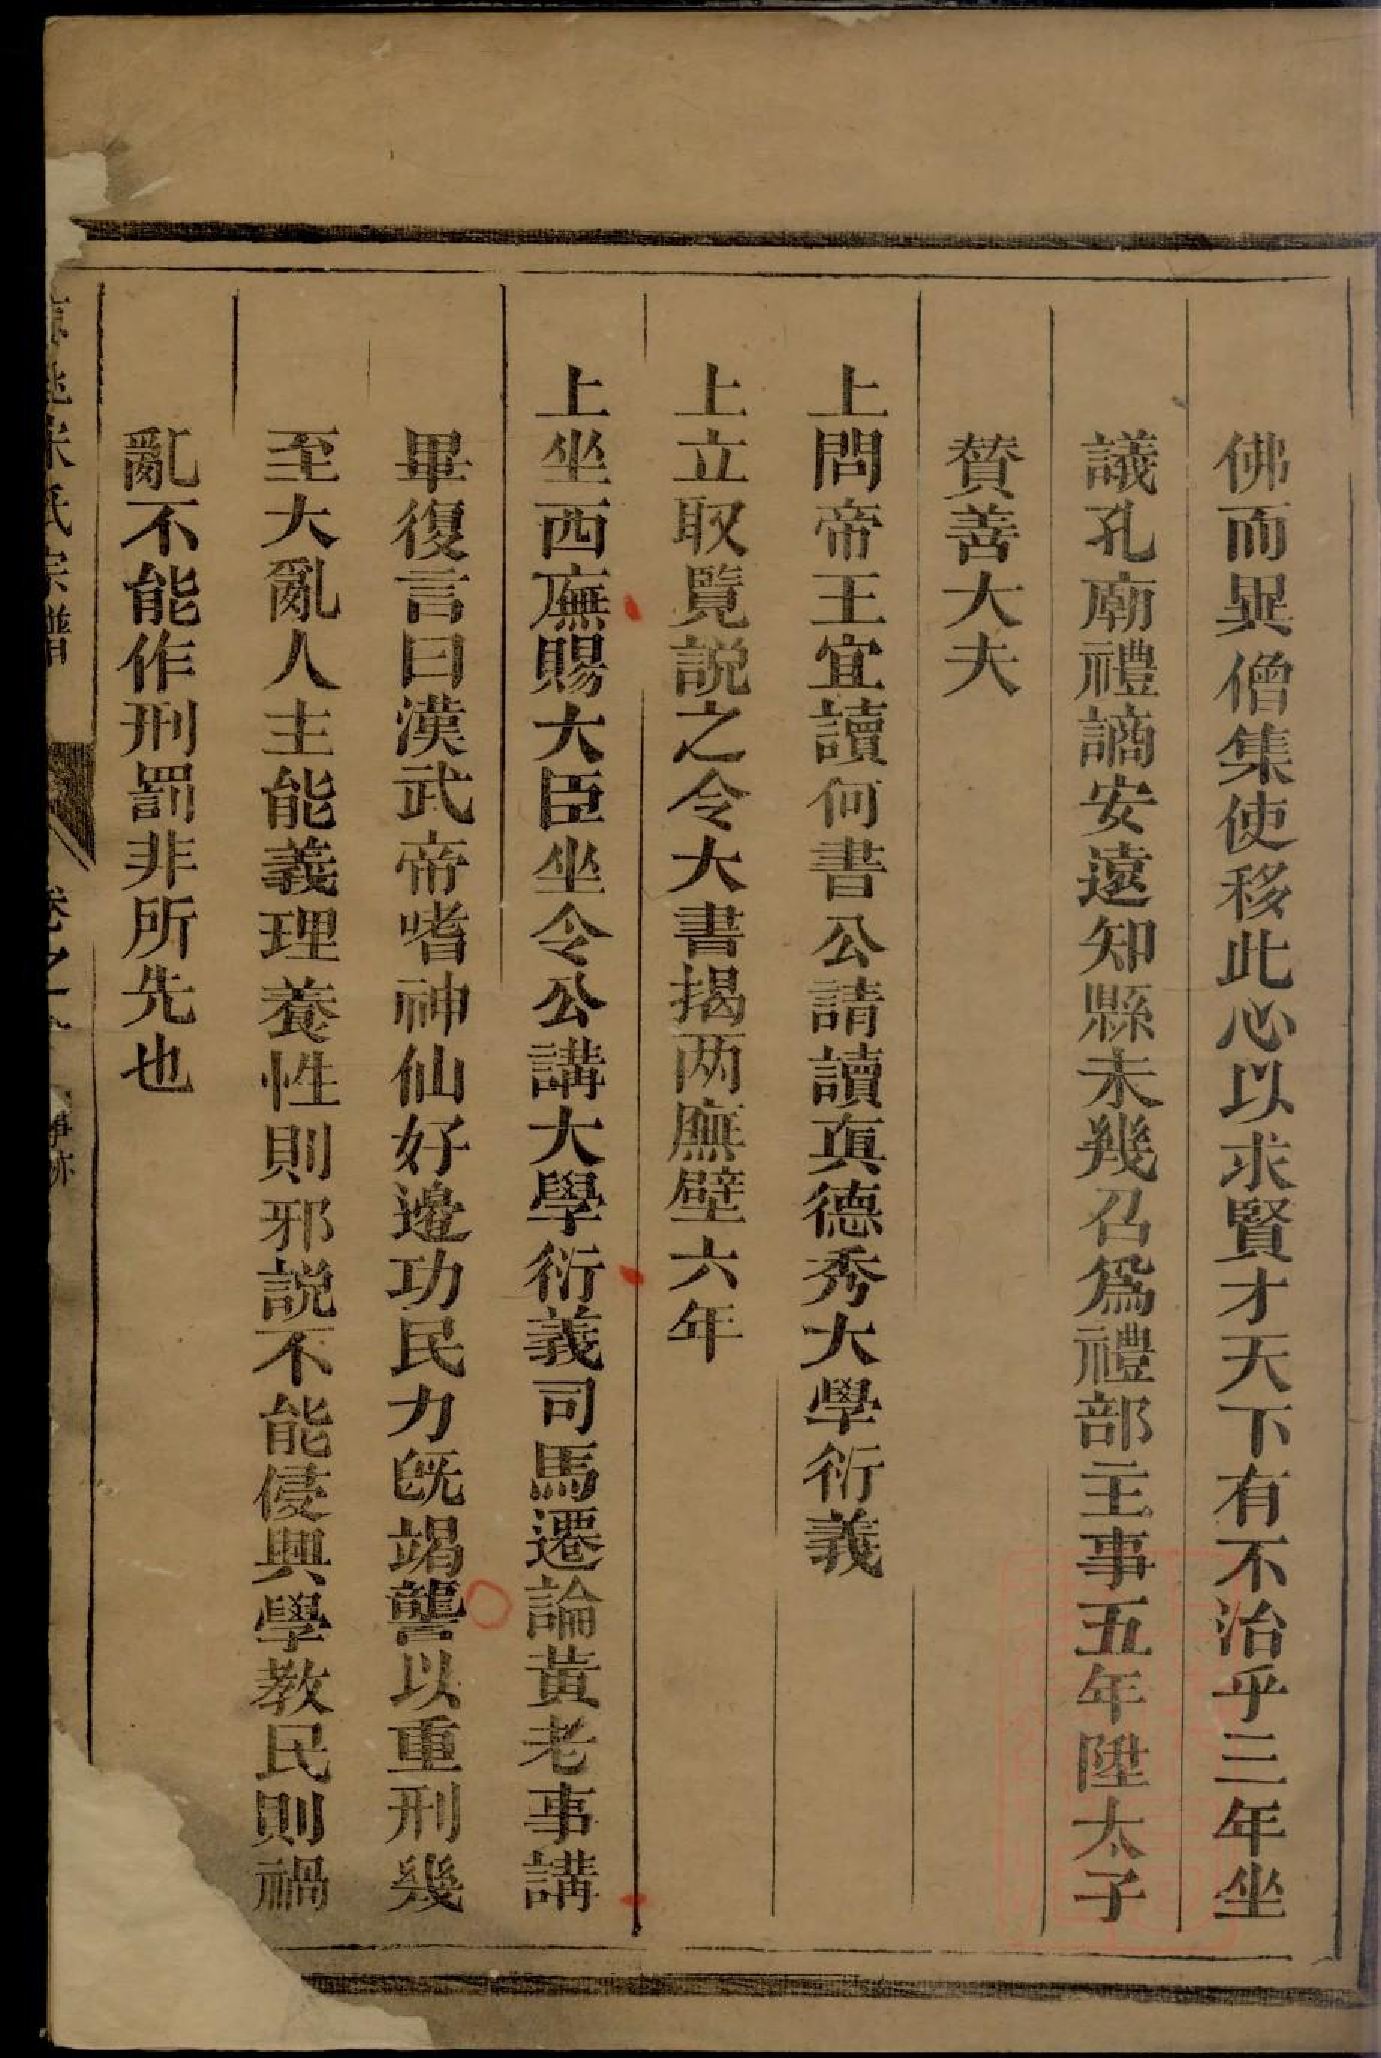 佛而異僧集使移此心以求賢才天下有不治乎三年坐
議孔廟禮謫安遠知縣未幾召爲禮部主事五年陞太子
賛善大夫
上問帝王宜讀何書公請讀眞德秀大學衍義
上立取覽説之令大書揭两廡壁六年
上坐西廡賜大臣坐令公講大學衍義司馬遷論黄老事講
畢復言曰漢武帝嗜神仙好邊功民力旣竭讋以重刑幾
至大亂人主能義理養性則邪説不能侵興學教民則禍
亂不能作刑罰非所先也
宋氏宗譜 卷之 事跡